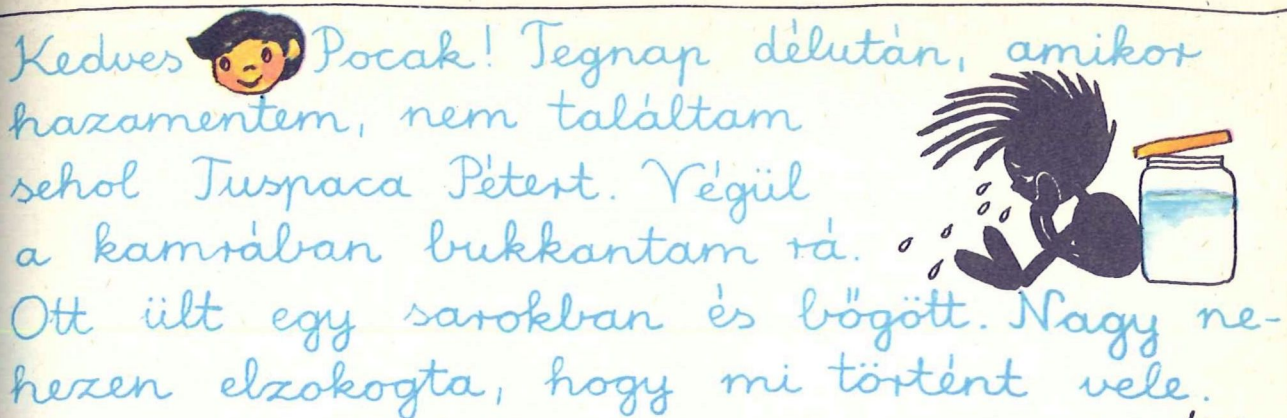 Kedves Pocak! Tegnap délután, amikor
hazamentem, nem találtam
sehol Tuspaca Pétert. Végül
a kamrában bukkantam rá.
Ott ült egy sarokban és bőgött. Nagy ne-
hezen elzokogta, hogy mi történt vele.